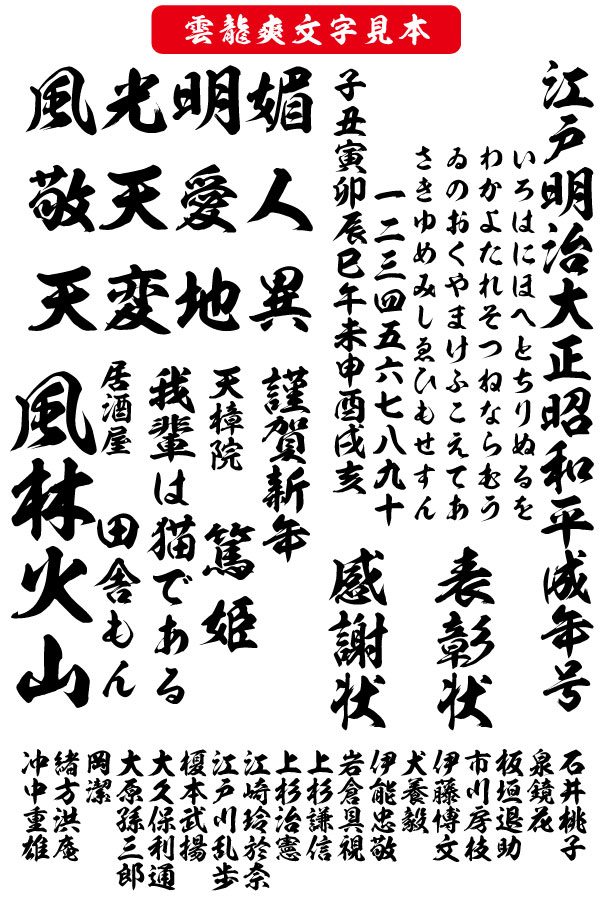 雲龍爽文字見本
江戸明治大正昭和平成年号
いろはにほへとちりぬるを
わかよたれそつねならむう
ゐのおくやまけふこえてあ
さきゆめみしゑひもせすん
一二三四五六七八九十
子丑寅卯辰巳午未申酉戌亥
表彰状
感謝状
風光明媚
敬天愛人
天変地異
謹賀新年
天樟院 篤姫
我輩は猫である
居酒屋 田舎もん
風林火山
石井桃子
泉鏡花
板垣退助
市川房枝
伊藤博文
犬養毅
伊能忠敬
岩倉具視
上杉謙信
上杉治憲
江崎玲於奈
江戸川乱歩
榎本武揚
大久保利通
大原孫三郎
岡潔
緒方洪庵
冲中重雄